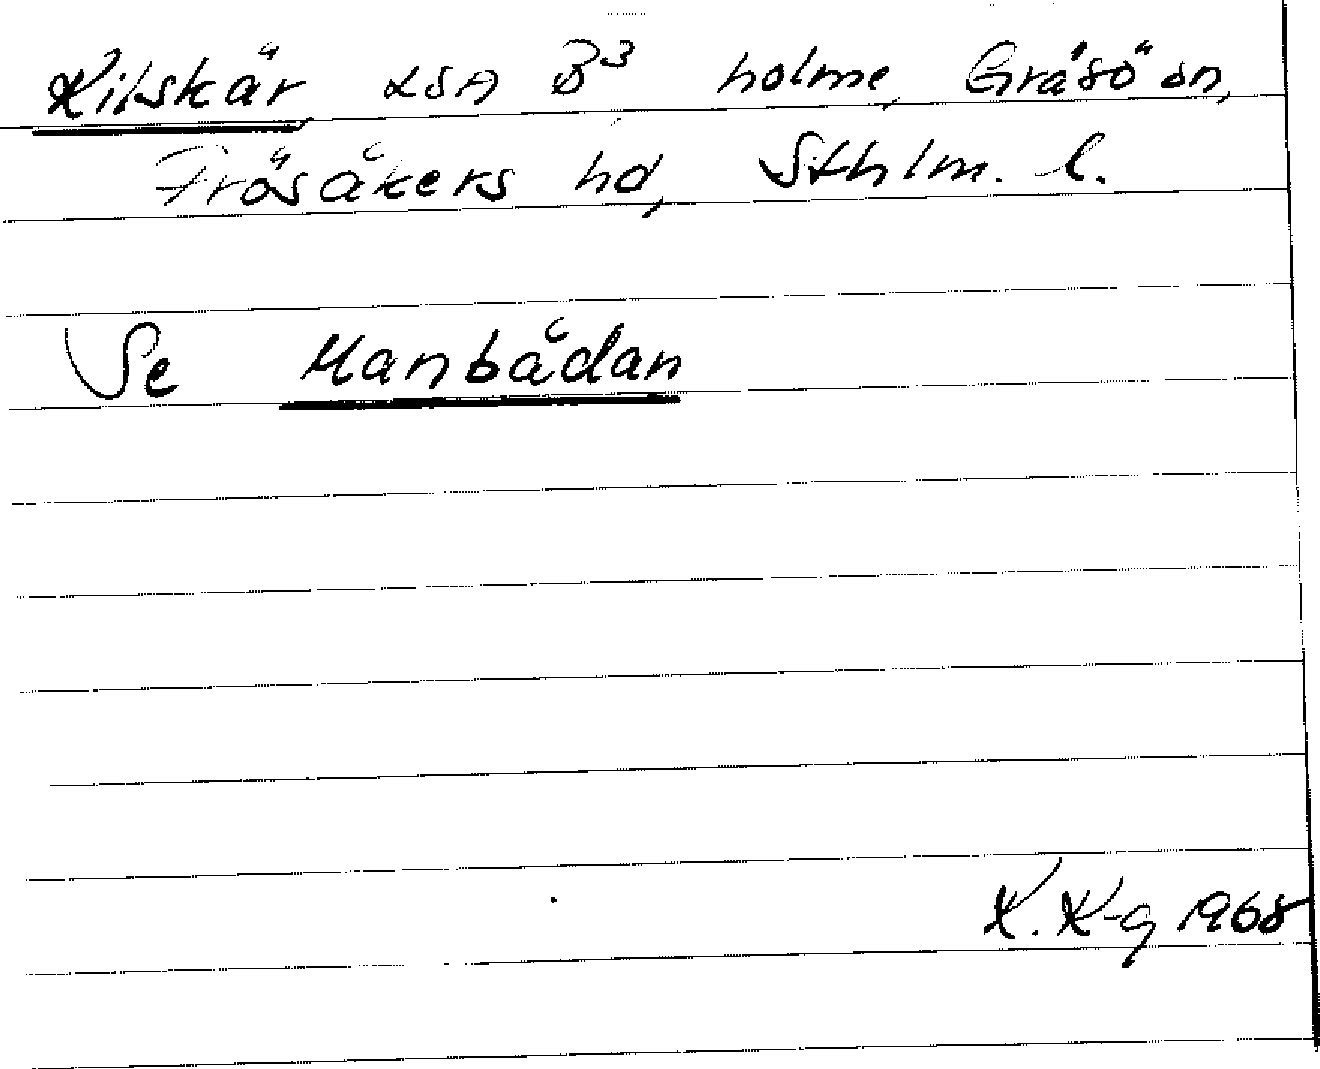 Kilskär LSA B3 holme, Gräsö sn,
Frösåkers hd, Sthlm. l.
Se Manbådan
K. K-g 1968